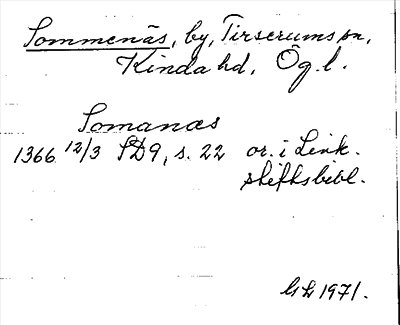 Sommenäs, by, Tirserums sn,
Kinda hd, Ög. l.
Somanæs
1366 12/3 SD9, s. 22 or. i Link.
stiftsbibl.
1971.